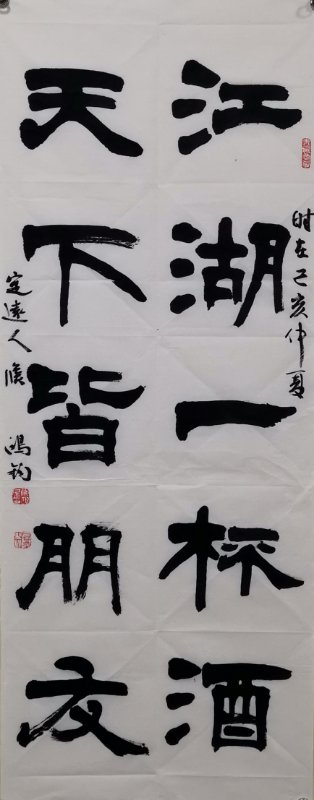 江湖一杯酒
天下皆朋友
时在己亥仲夏
定远人
鸿钧